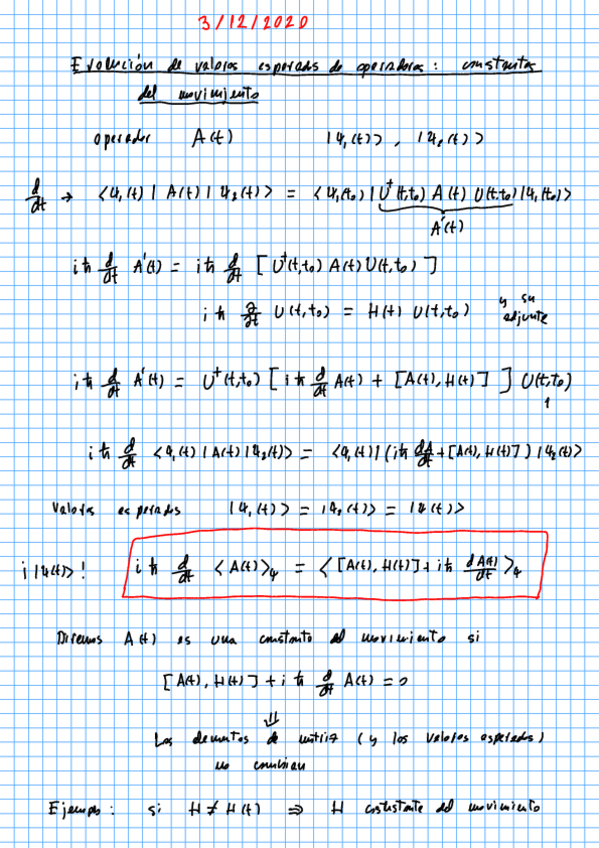 3/12/2020
Evolución de valores esperados de operadores: constantes
del movimiento
operador A(t) |ψ₁(t)> , |ψ₂(t)>
d/dt → <ψ₁(t)| A(t) |ψ₂(t)> = <ψ₁(t₀)| U†(t,t₀) A(t) U(t,t₀) |ψ₂(t₀)>
A'(t)
iħ d/dt A'(t) = iħ d/dt [U†(t,t₀) A(t) U(t,t₀)]
iħ ∂/∂t U(t,t₀) = H(t) U(t,t₀) y su adjunta
iħ d/dt A'(t) = U†(t,t₀) [iħ d/dt A(t) + [A(t), H(t)]] U(t,t₀)
iħ d/dt <ψ₁(t)|A(t)|ψ₂(t)> = <ψ₁(t)|(iħ dA/dt + [A(t), H(t)])|ψ₂(t)>
Valores esperados |ψ₁(t)> = |ψ₂(t)> = |ψ(t)>
¡|ψ(t)>! iħ d/dt <A(t)>ψ = <[A(t), H(t)] + iħ dA(t)/dt>ψ
Diremos A(t) es una constante del movimiento si
[A(t), H(t)] + iħ d/dt A(t) = 0
⇓
Los elementos de matriz (y los valores esperados)
no cambian
Ejemplo: si H ≠ H(t) ⇒ H constante del movimiento